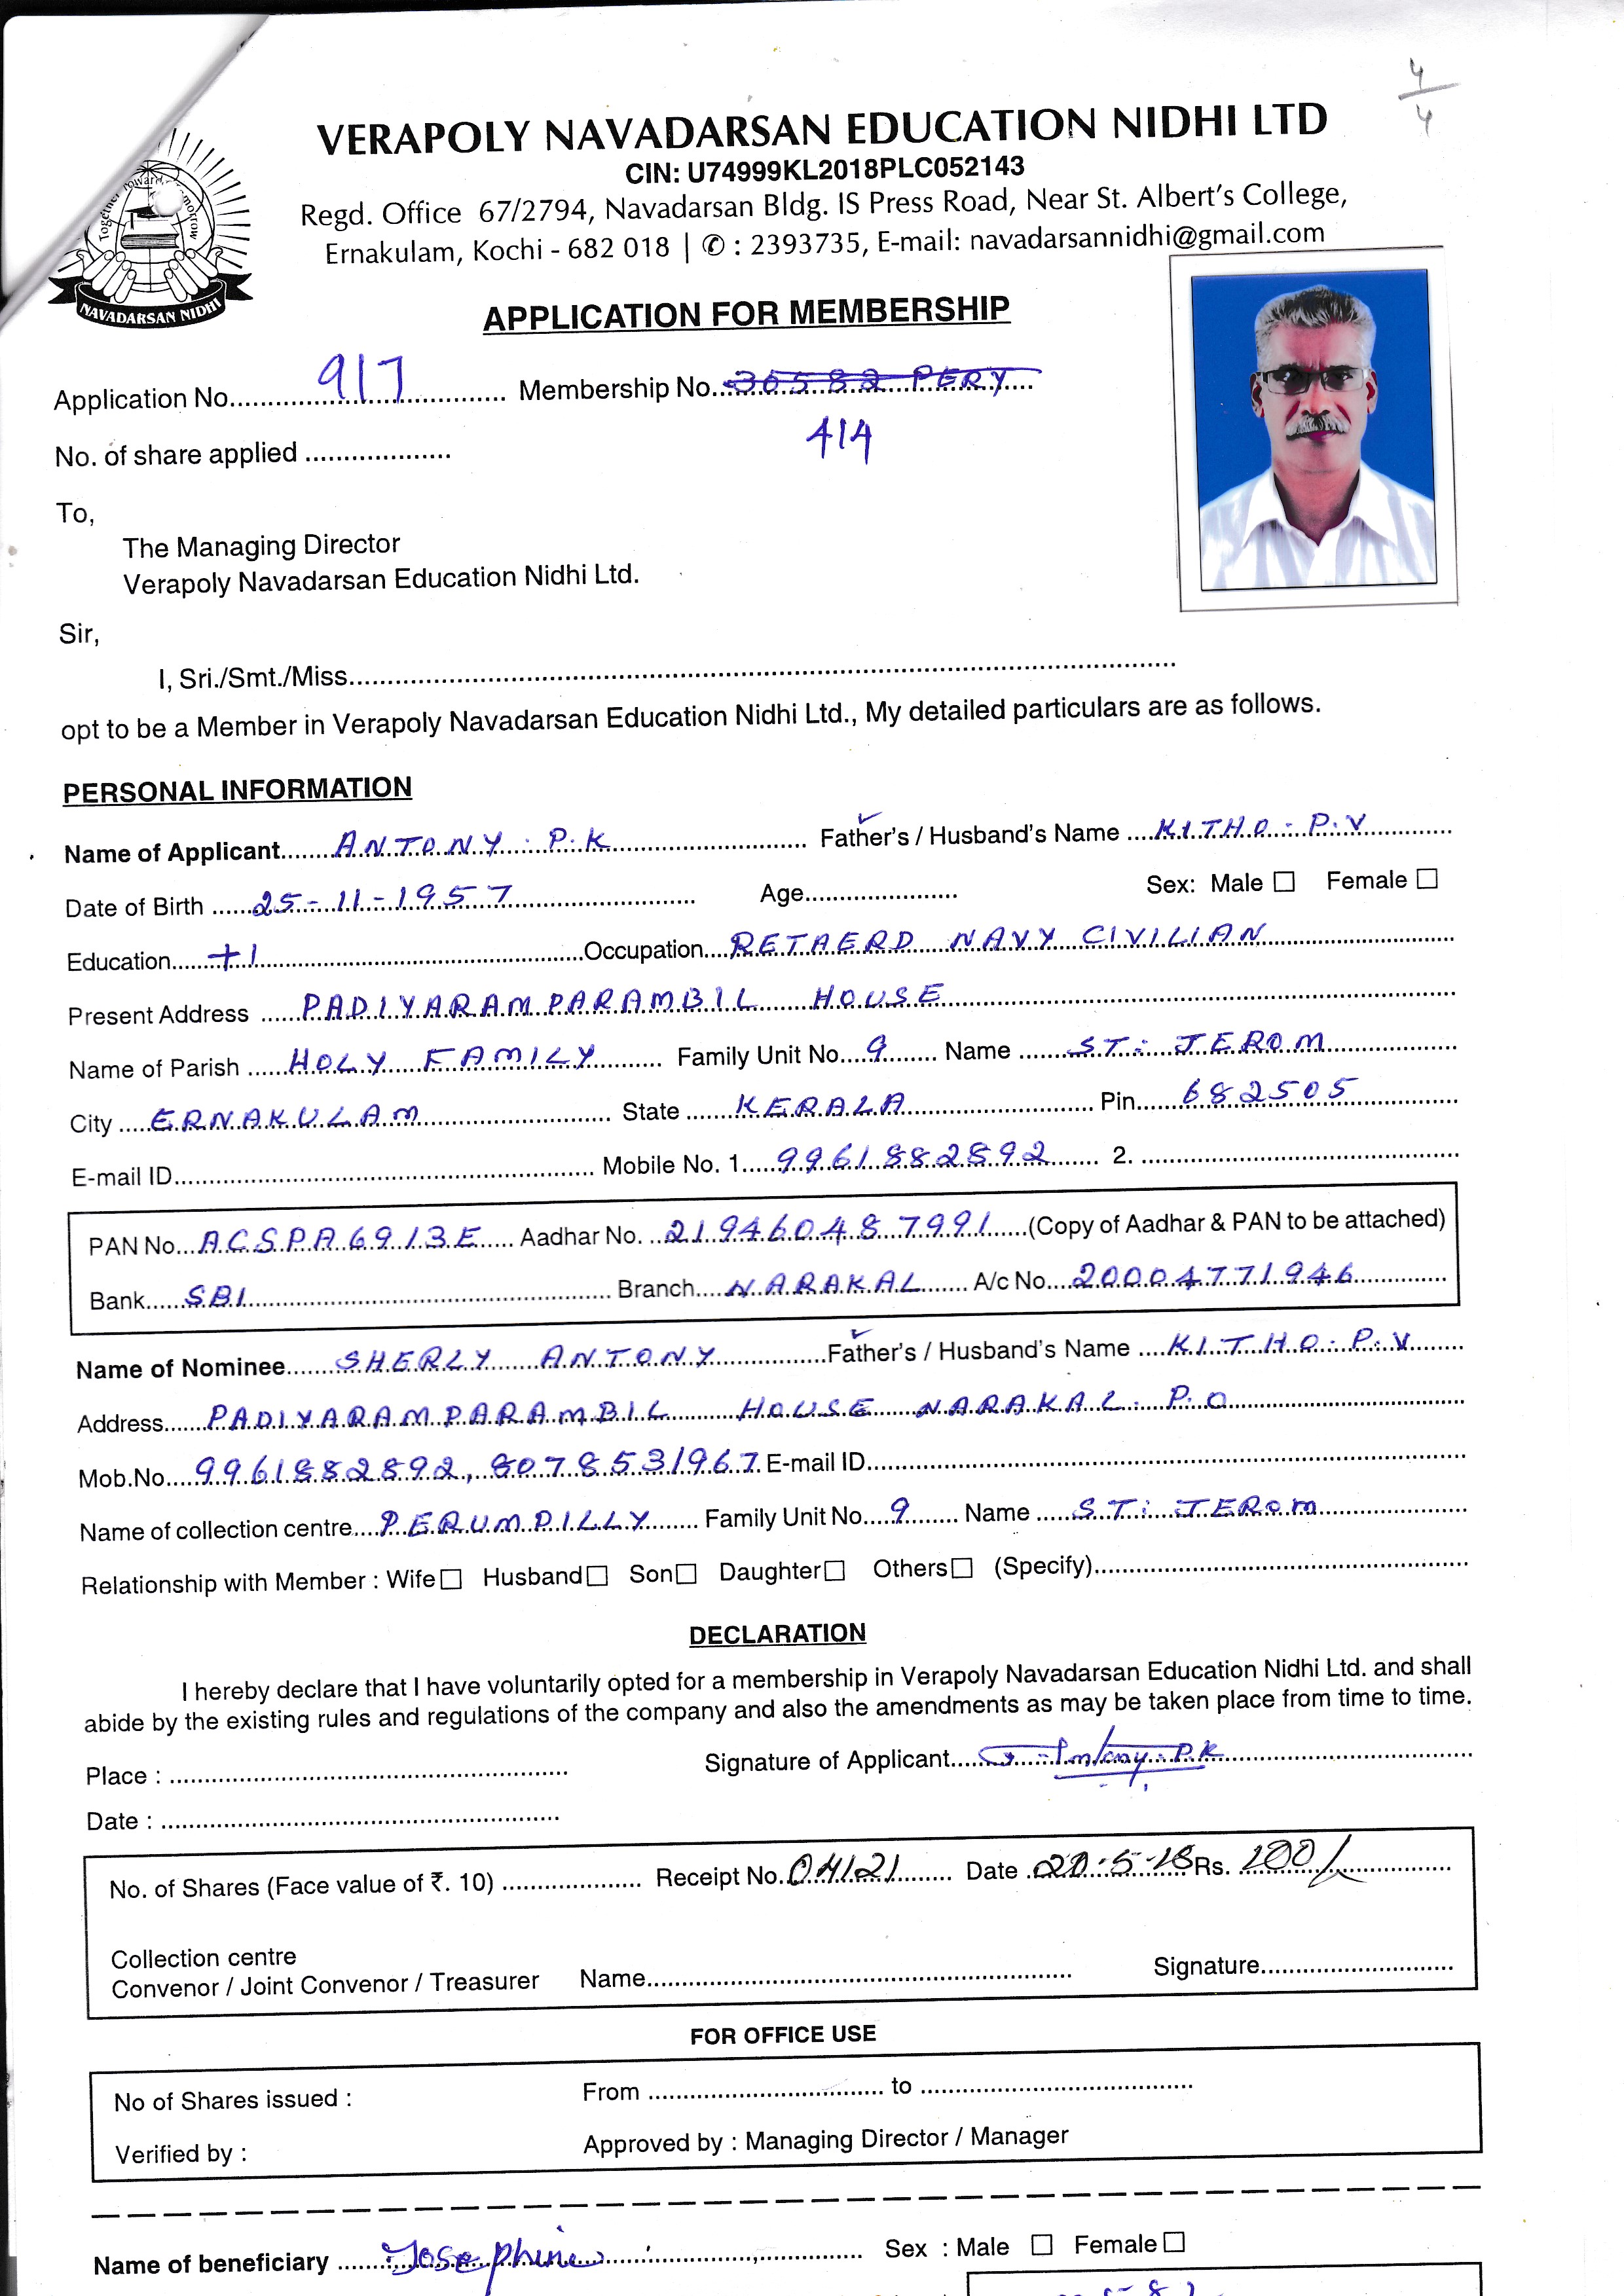 4/4
VERAPOLY NAVADARSAN EDUCATION NIDHI LTD
CIN: U74999KL2018PLC052143
Regd. Office 67/2794, Navadarsan Bldg. IS Press Road, Near St. Albert's College,
Ernakulam, Kochi - 682 018 | ✆ : 2393735, E-mail: navadarsannidhi@gmail.com
NAVADARSAN NIDHI
APPLICATION FOR MEMBERSHIP
Application No. 917 Membership No. 30582 PERY
414
No. of share applied
To,
The Managing Director
Verapoly Navadarsan Education Nidhi Ltd.
Sir,
I, Sri./Smt./Miss
opt to be a Member in Verapoly Navadarsan Education Nidhi Ltd., My detailed particulars are as follows.
PERSONAL INFORMATION
Name of Applicant ANTONY . P.K Father's / Husband's Name KITHO . P.V
Date of Birth 25-11-1957 Age Sex: Male ☐ Female ☐
Education +1 Occupation RETAERD NAVY CIVILIAN
Present Address PADIYARAMPARAMBIL HOUSE
Name of Parish HOLY FAMILY Family Unit No. 9 Name ST: JEROM
City ERNAKULAM State KERALA Pin 682505
E-mail ID Mobile No. 1. 9961882892 2.
PAN No. ACSPA6913E Aadhar No. 219460487991 (Copy of Aadhar & PAN to be attached)
Bank SBI Branch NARAKAL A/c No. 20004771946
Name of Nominee SHERLY ANTONY Father's / Husband's Name KITHO. P.V
Address PADIYARAMPARAMBIL HOUSE NARAKAL. P.O
Mob.No. 9961882892, 8078531967 E-mail ID
Name of collection centre PERUMPILLY Family Unit No. 9 Name ST: JEROM
Relationship with Member : Wife ☐ Husband ☐ Son ☐ Daughter ☐ Others ☐ (Specify)
DECLARATION
I hereby declare that I have voluntarily opted for a membership in Verapoly Navadarsan Education Nidhi Ltd. and shall
abide by the existing rules and regulations of the company and also the amendments as may be taken place from time to time.
Place : Signature of Applicant Antony. P.K
Date :
No. of Shares (Face value of ₹. 10) Receipt No. 04121 Date 20-5-18 Rs. 100/
Collection centre
Convenor / Joint Convenor / Treasurer Name Signature
FOR OFFICE USE
No of Shares issued : From to
Verified by : Approved by : Managing Director / Manager
Name of beneficiary Josephine Sex : Male ☐ Female ☐